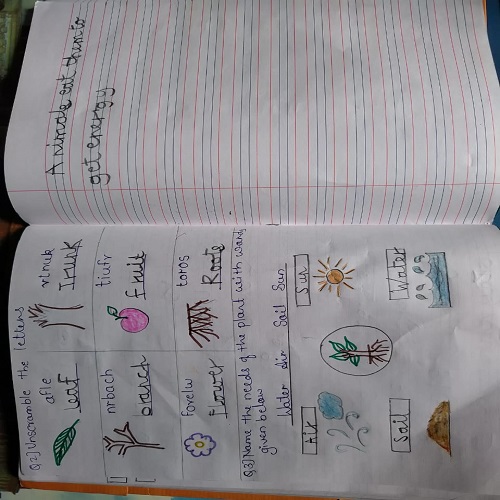 Q2] Unscramble the letters
afle rtnuk
leaf Trunk
nrbach tiufr
branch Fruit
Fovelw toros
Flower Roots
Q3] Name the needs of the plant with words
given below
Water Air Soil Sun
Air Sun
Soil Water
Animals eat them to
get energy